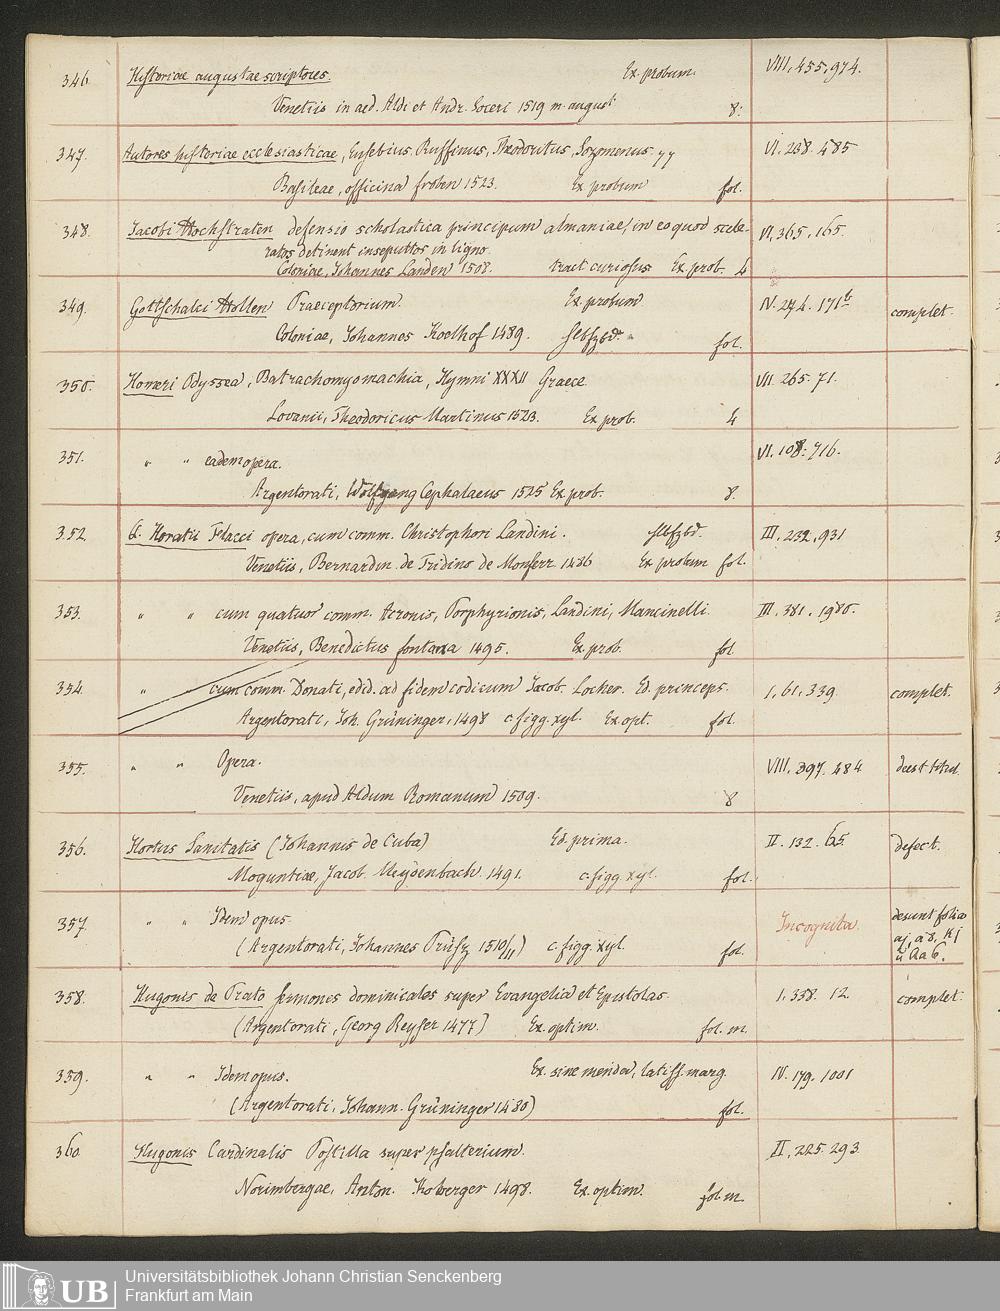 346. Historiae augustae scriptores. Ex. probum. VIII. 455. 974.
Venetiis in aed. Aldi et Andr. Soceri 1519 m. august 8.
347. Autores historiae ecclesiasticae, Eusebius, Ruffinus, Theodoritus, Sozomenus VI. 238. 485
Basileae, officina froben 1523. Ex probum fol.
348. Jacobi Hochstraten defensio scholastica principum almaniae, in eo quod scele- VI. 365. 165.
ratos detinent insepultos in ligno.
Coloniae, Johannes Landen 1508. tract curiosus Ex prob. 4
349. Gottschalci Hollen Praeceptorium. Ex. probum IV. 274. 171b complet.
Coloniae, Johannes Koelhof 1489. fol.
350. Homeri Odyssea, Batrachomyomachia, Hymni XXXII Graece VII. 265. 71.
Lovanii, Theodoricus Martinus 1523. Ex prob. 4
351. " " eadem opera. VI. 108. 716.
Argentorati, Wolfgang Cephalaeus 1525 Ex prob. 8.
352 Q. Horatii Flacci opera, cum comm. Christophori Landini. III. 232. 931
Venetiis, Bernardin. de Tridino de Monferr. 1486 Ex probum fol.
353. " " cum quatuor comm. Acronis, Porphyrionis, Landini, Mancinelli III. 381. 1980.
Venetiis, Benedictus fontana 1495. Ex. prob. fol.
354. " " cum comm. Donati, edid. ad fidem codicum Jacob. Locher. Ed. princeps. I. 61. 339. complet.
Argentorati, Joh. Grüninger, 1498 c. figg. xyl. Ex opt. fol.
355. " " Opera. VIII. 397. 484 deest titul.
Venetiis, apud Aldum Romanum 1509. 8
356. Hortus Sanitatis (Johannis de Cuba) Ed. prima. II. 132. 65. defect.
Moguntiae, Jacob. Meydenbach 1491. c. figg. xyl. fol.
357. " " Idem opus. Incognita. desunt folia
(Argentorati, Johannes Prüss 1510/11) c. figg. xyl. fol.
358. Hugonis de Prato sermones dominicales super Evangelia et Epistolas I. 338. 12. complet.
(Argentorati, Georg Reyser 1477) Ex. optim. fol. m.
359. " " Idem opus. Ex. sine menda, latiss. marg. IV. 179. 1001
(Argentorati, Johann. Grüninger 1480) fol.
360 Hugonis Cardinalis Postilla super psalterium. II. 225. 293.
Norimbergae, Anton. Koberger 1498. Ex. optim. fol. m.
UB Universitätsbibliothek Johann Christian Senckenberg
Frankfurt am Main